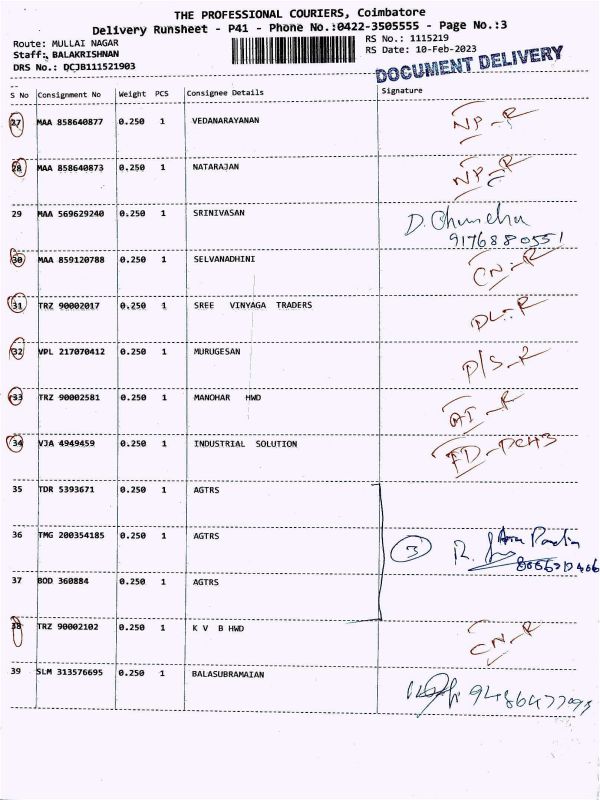 THE PROFESSIONAL COURIERS, Coimbatore
Delivery Runsheet - P41 - Phone No.:0422-3505555 - Page No.:3
Route: MULLAI NAGAR RS No.: 1115219
Staff: BALAKRISHNAN RS Date: 10-Feb-2023
DRS No.: DCJB111521903
DOCUMENT DELIVERY
S No Consignment No Weight PCS Consignee Details Signature
27 MAA 858640877 0.250 1 VEDANARAYANAN NP-R
28 MAA 858640873 0.250 1 NATARAJAN NP-R
29 MAA 569629240 0.250 1 SRINIVASAN D.
9176880551
30 MAA 859120788 0.250 1 SELVANADHINI CN-R
31 TRZ 90002017 0.250 1 SREE VINYAGA TRADERS DL-R
32 VPL 217070412 0.250 1 MURUGESAN P/S-R
33 TRZ 90002581 0.250 1 MANOHAR HWD AI-R
34 VJA 4949459 0.250 1 INDUSTRIAL SOLUTION
35 TDR 5393671 0.250 1 AGTRS
36 TMG 200354185 0.250 1 AGTRS 3 R.
37 BOD 360884 0.250 1 AGTRS
38 TRZ 90002102 0.250 1 K V B HWD CN-R
39 SLM 313576695 0.250 1 BALASUBRAMAIAN